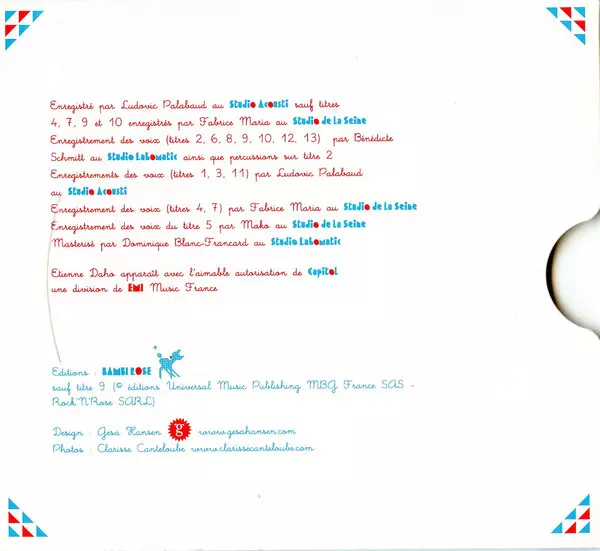 Enregistré par Ludovic Palabaud au Studio Acousti sauf titres
4, 7, 9 et 10 enregistrés par Fabrice Maria au Studio de la Seine
Enregistrement des voix (titres 2, 6, 8, 9, 10, 12, 13) par Bénédicte
Schmitt au Studio Labomatic ainsi que percussions sur titre 2
Enregistrements des voix (titres 1, 3, 11) par Ludovic Palabaud
au Studio Acousti
Enregistrement des voix (titres 4, 7) par Fabrice Maria au Studio de la Seine
Enregistrement des voix du titre 5 par Mako au Studio de la Seine
Masterisé par Dominique Blanc-Francard au Studio Labomatic
Etienne Daho apparaît avec l'aimable autorisation de Capitol
une division de EMI Music France
Editions : BAMBI ROSE
sauf titre 9 (© éditions Universal Music Publishing MBG France SAS -
Rock'N'Rose SARL)
Design : Gesa Hansen g www.gesahansen.com
Photos : Clarisse Canteloube www.clarissecanteloube.com